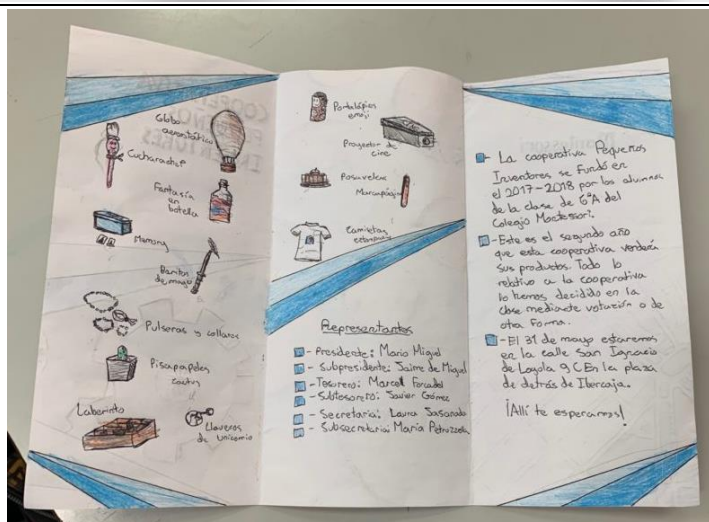 Globo
aerostático
Cucharachef
Fantasía
en
botella
Memory
Barita
de mago
Pulseras y collares
Pisapapeles
cactus
Laberinto
Llaveros
de unicornio
Portalápices
emoji
Proyector de
cine
Posavelas
Marcapáginas
Camisetas
estampadas
Representantes
- Presidente: Mario Miguel
- Subpresidente: Jaime de Miguel
- Tesorero: Marcel Forcadel
- Subtesorero: Javier Gómez
- Secretaria: Laura
- Subsecretaria: María
- La cooperativa Pequeños
Inventores se fundó en
el 2017-2018 por los alumnos
de la clase de 6ºA del
Colegio Montessori.
- Este es el segundo año
que esta cooperativa venderá
sus productos. Todo lo
relativo a la cooperativa
lo hemos decidido en la
clase mediante votación o de
otra forma.
- El 31 de mayo estaremos
en la calle San Ignacio
de Loyola 9 C En la plaza
de detrás de Ibercaja.
¡Allí te esperamos!